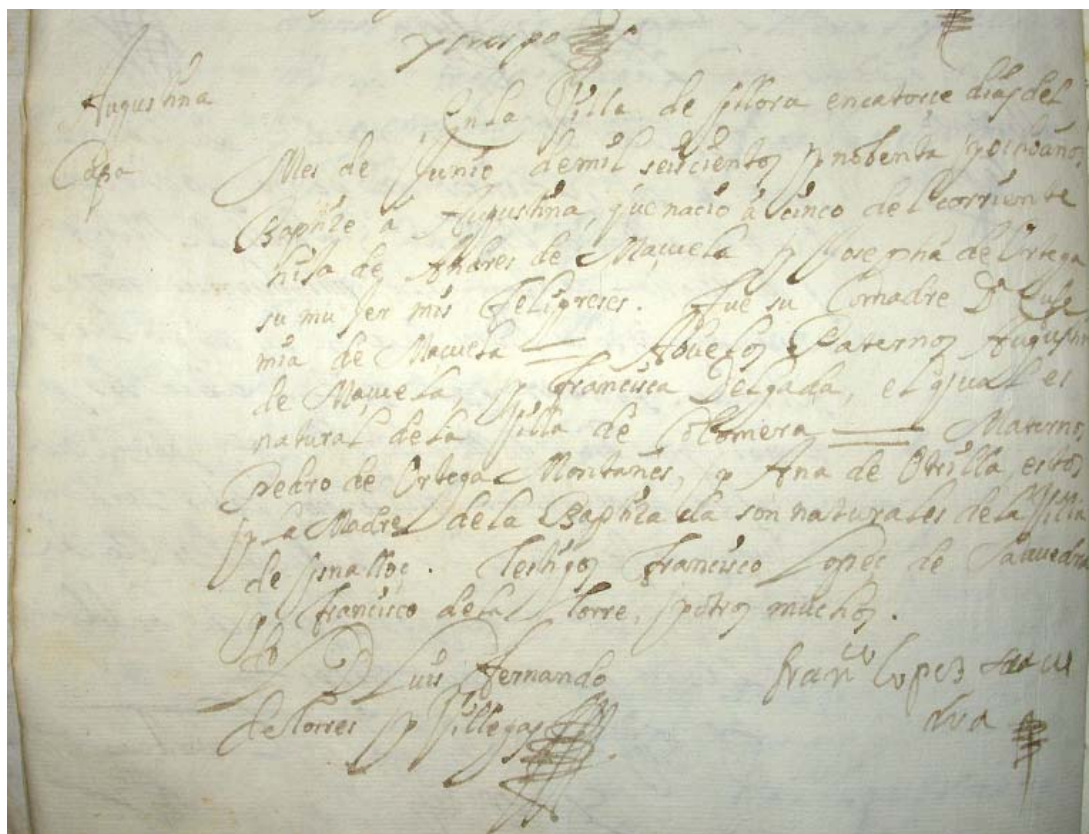 y crespo
Augustina
Casa
En la Villa de Yllora en catorçe dias del
Mes de Junio de mil seiscientos y nobenta y ocho años
Baptiçe à Augustina, que naciò à cinco del corriente
hija de Andres de Maçuela y Josepha de Ortega
su mujer mis feligreses. fue su Comadre Dª Eufe
mia de Maçuela = Abuelos Paternos Augustin
de Maçuela, y francisca Delgada, el qual es
natural de la Villa de Colomera = Maternos,
Pedro de Ortega Montañes, y Ana de Utrilla, estos,
y la Madre de la Baptiçada son naturales de la Villa
de Ysnalloç. Testigos francisco Lopez de Saavedra
y francisco de la Torre, y otros muchos.
D Luis fernando
de Torres y Villegas
franco lopez saaue
dra